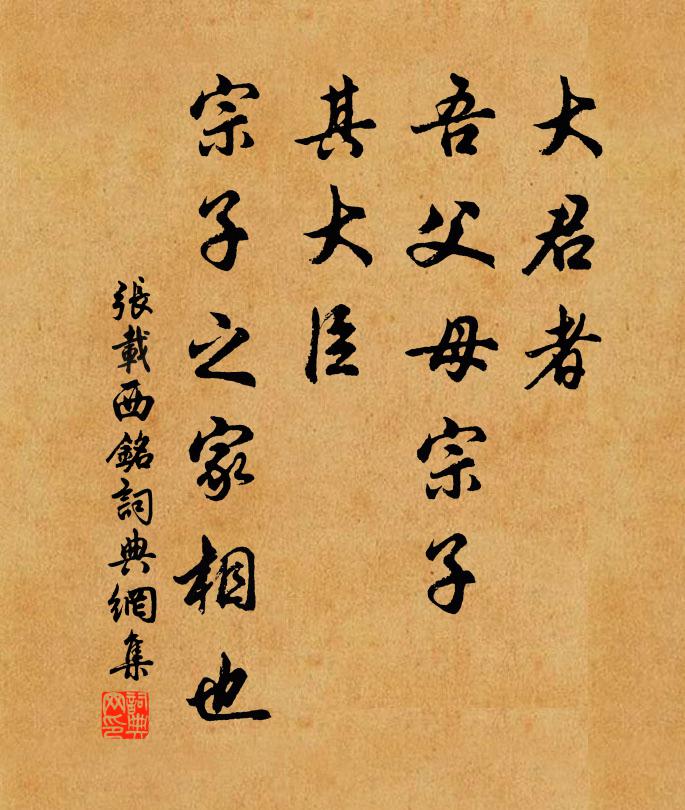 大君者
吾父母宗子
其大臣
宗子之家相也
張載西銘詞典網集
詞典网印